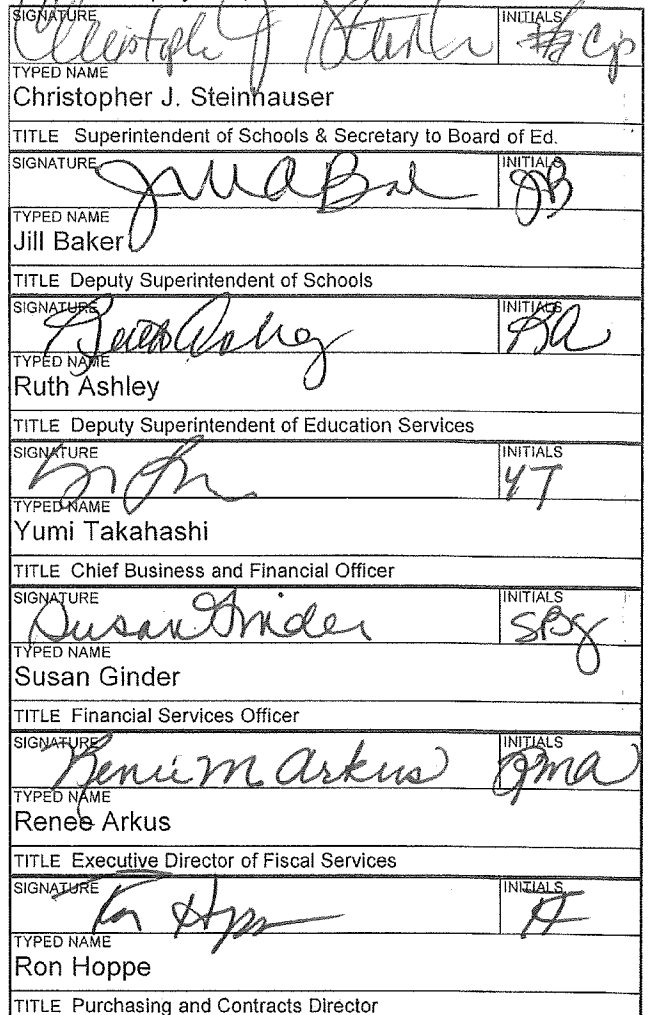 SIGNATURE Christopher J Steinhauser INITIALS cjs
TYPED NAME
Christopher J. Steinhauser
TITLE Superintendent of Schools & Secretary to Board of Ed.
SIGNATURE Jill A Baker INITIALS JB
TYPED NAME
Jill Baker
TITLE Deputy Superintendent of Schools
SIGNATURE Ruth Ashley INITIALS RA
TYPED NAME
Ruth Ashley
TITLE Deputy Superintendent of Education Services
SIGNATURE INITIALS YT
TYPED NAME
Yumi Takahashi
TITLE Chief Business and Financial Officer
SIGNATURE Susan Ginder INITIALS SBG
TYPED NAME
Susan Ginder
TITLE Financial Services Officer
SIGNATURE Renee M Arkus INITIALS RMA
TYPED NAME
Renee Arkus
TITLE Executive Director of Fiscal Services
SIGNATURE Ron Hoppe INITIALS
TYPED NAME
Ron Hoppe
TITLE Purchasing and Contracts Director